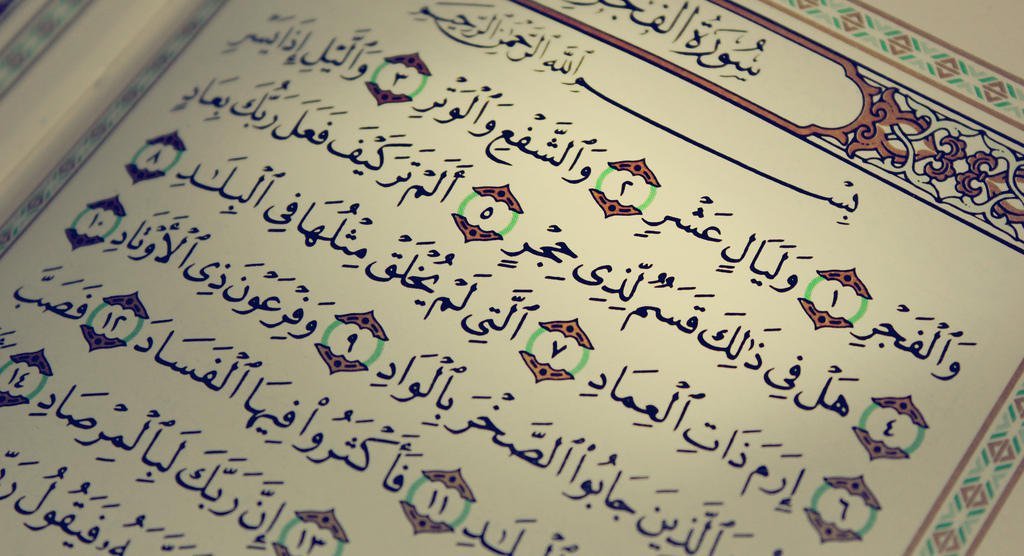 سُورَةُ الفَجْرِ
بِسْمِ ٱللَّهِ ٱلرَّحْمَٰنِ ٱلرَّحِيمِ
وَٱلْفَجْرِ ١ وَلَيَالٍ عَشْرٍ ٢ وَٱلشَّفْعِ وَٱلْوَتْرِ ٣ وَٱلَّيْلِ إِذَا يَسْرِ
٤ هَلْ فِي ذَٰلِكَ قَسَمٌ لِّذِي حِجْرٍ ٥ أَلَمْ تَرَ كَيْفَ فَعَلَ رَبُّكَ بِعَادٍ
٦ إِرَمَ ذَاتِ ٱلْعِمَادِ ٧ ٱلَّتِي لَمْ يُخْلَقْ مِثْلُهَا فِي ٱلْبِلَٰدِ ٨
ٱلَّذِينَ جَابُوا۟ ٱلصَّخْرَ بِٱلْوَادِ ٩ وَفِرْعَوْنَ ذِي ٱلْأَوْتَادِ ١٠
١١ فَأَكْثَرُوا۟ فِيهَا ٱلْفَسَادَ ١٢ فَصَبَّ
١٣ إِنَّ رَبَّكَ لَبِٱلْمِرْصَادِ ١٤
فَيَقُولُ